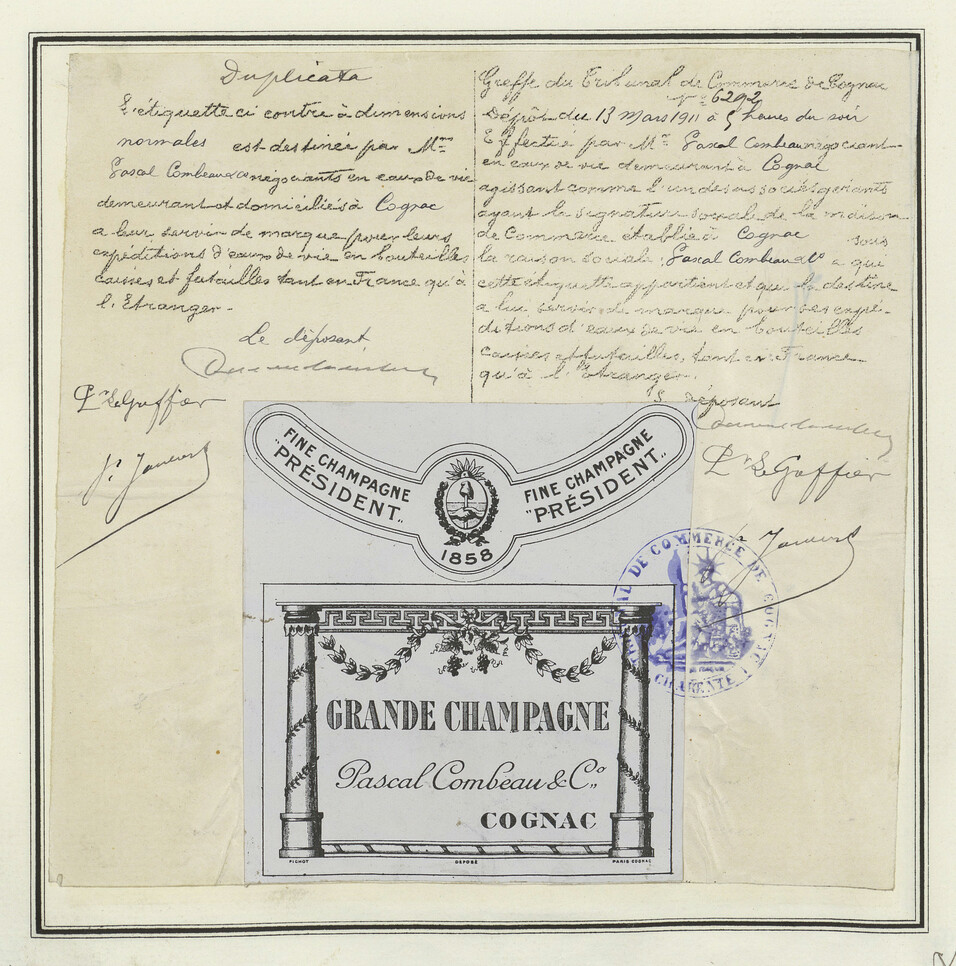 Duplicata
L'étiquette ci contre à dimensions
normales est destinée par Mrs
Pascal Combeau & Co négociants en eaux de vie
demeurant et domiciliés à Cognac
a leur servir de marque pour leurs
expéditions d'eaux de vie en bouteilles
caisses et futailles tant en France qu'à
l'Etranger -
Le déposant
Pr Le Greffier
Greffe du Tribunal de Commerce de Cognac
No 6292
Dépôt du 13 Mars 1911 à 5 heures du soir
Effectué par Mr Pascal Combeau négociant
en eaux de vie demeurant à Cognac
agissant comme l'un des associés gérants
ayant la signature sociale de la maison
de Commerce établie à Cognac sous
la raison sociale : Pascal Combeau & Co a qui
cette étiquette appartient et qui la destine
a lui servir de marque pour ses expé-
ditions d'eaux de vie en bouteilles
caisses et futailles, tant en France
qu'à l'Etranger.
Le déposant
Pr Le Greffier
FINE CHAMPAGNE
"PRÉSIDENT"
FINE CHAMPAGNE
"PRÉSIDENT"
1858
GRANDE CHAMPAGNE
Pascal Combeau & Co
COGNAC
PICHOT DEPOSÉ PARIS COGNAC
DE COMMERCE DE COGNAC
CHARENTE